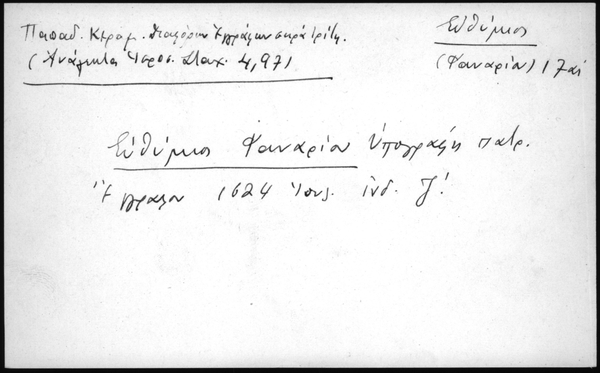 Παπαδ. Κεραμ. Διαφόρων Ἐγγράφων σειρὰ τρίτη.
(Ἀνάλεκτα Ἱεροσ. Σταχ. 4,97)
Εὐθύμιος
(Φαναρίου) 17 αἰ
Εὐθύμιος Φαναρίου ὑπογραφὴ πατρ.
Ἐγγράφου 1624 Ἰουν. ἰνδ. Ζ!